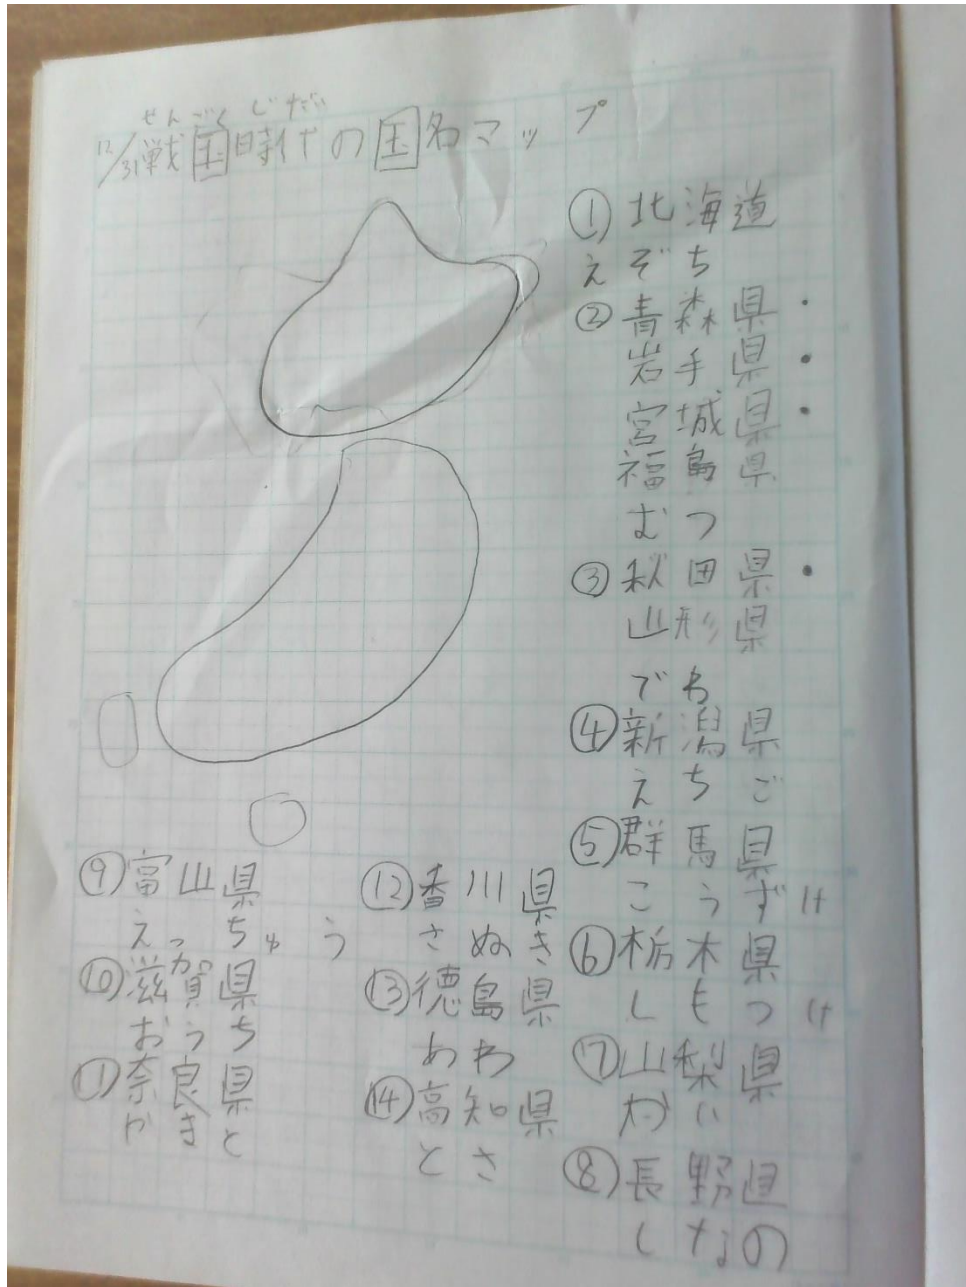 せんごくじだい
12/31 戦国時代の国名マップ
①北海道
えぞち
②青森県・
岩手県・
宮城県・
福島県
むつ
③秋田県・
山形県
でわ
④新潟県
えちご
⑤群馬県
こうずけ
⑥栃木県
しもつけ
⑦山梨県
かい
⑧長野県
しなの
⑨富山県
えっちゅう
⑩滋賀県
おうち
⑪奈良県
やまと
⑫香川県
さぬき
⑬徳島県
あわ
⑭高知県
とさ